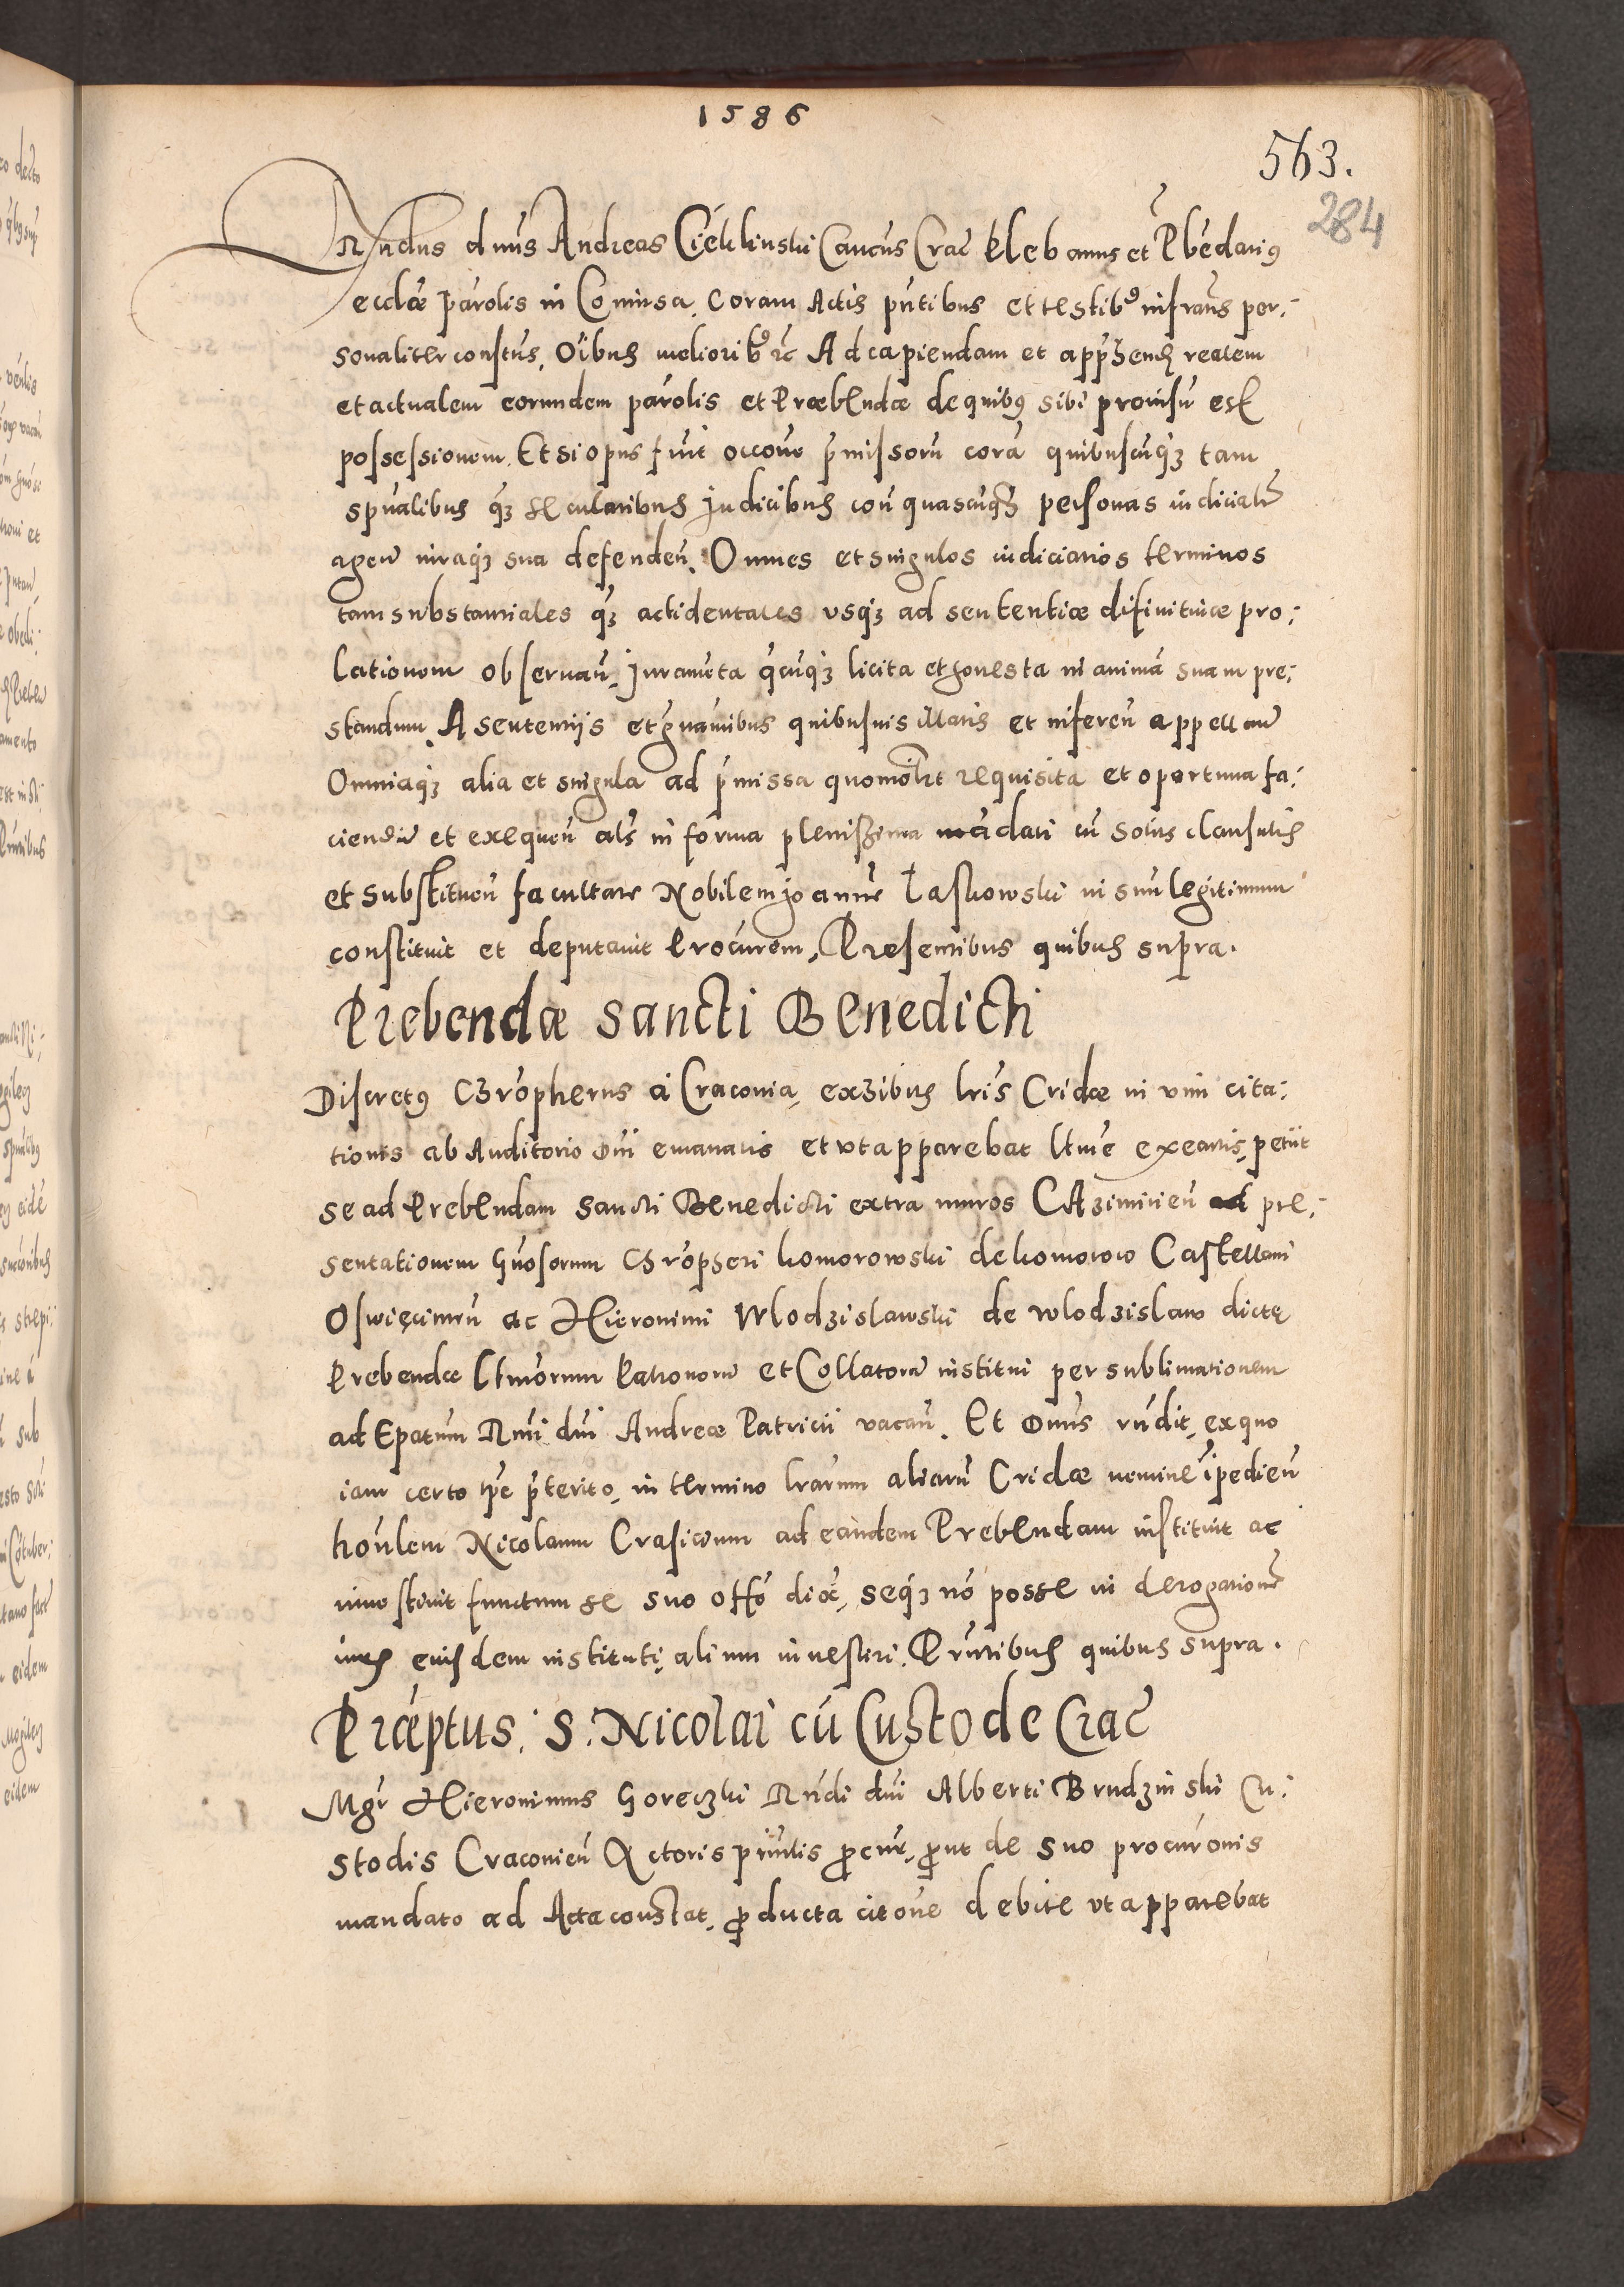 1586
563.
284
Rndus dnus Andreas Cieklinski Cancus Crac plebanus et Pbēdarius
ecclae parolis in Coniusa, Coram Actis pñtibus et testibus infrans per:
sonaliter constus, Oibus melioribus etc Ad capiendam et appħend realem
et actualem eorundem parolis et Praebendae de quibus sibi provisu est
possessionem. Et si opus fuit occone pmissoru cora quibuscuqz tam
spualibus qz secularibus Judicibus con quascuqz personas indicialr
agen iuraqz sua defenden, Omnes et singulos iudiciarios terminos
tam substantiales qz actidentales usqz ad sententiae difinitivae pro:
lationem observan, Juramenta qcuqz licita et honesta in anima suam pre:
standum, A sententijs et gravaibus quibusvis illatis et inferen appellan
Omniaqz alia et singula ad pmissa quomolibet requisita et oportuna fa:
ciendu et exequen als in forma plenissima madati cu solitis clausulis
et substituen facultate Nobilem Joanne Laskowski in suu legitimum
constituit et deputavit Procurem, Presentibus quibus supra.
Prebendae Sancti Benedicti
Discretus Chropherus a Cracovia, exhibus lris Cridae in vim cita:
tionis ab Auditorio Dni emanatis et ut apparebat ltme exeqtis, petiit
se ad Prebendam Sancti Benedicti extra muros CAzimirien pre:
sentationem Gnosorum Chropheri Komorowski de Komorow Castellani
Oswięcimen ac Hieronimi Wlodzislawski de Wlodzislaw dictę
Prebendae ltmorum Patronoru et Collatoru institui per sublimationem
ad Epatum Rmi dni Andreae Patricii vacan. Et Dnus rndit, ex quo
iam certo tpe pterito, in termino lrarum aliaru Cridae nemine ipedien
honlem Nicolaum Crasicium ad eandem Prebendam instituit ac
investivit functum se suo offo dic, seqz no posse in derogatione
iuris eiusdem instituti, alium investiri. Pruntibus quibus supra.
Praeptus. S. Nicolai cu Custode Crac
Mgr Hieronimus Goreczki Rndi dni Alberti Brudzinski Cu:
stodis Cracovien Actoris prinlis procur, prout de suo procuronis
mandato ad Acta constat, producta citone debite ut apparebat